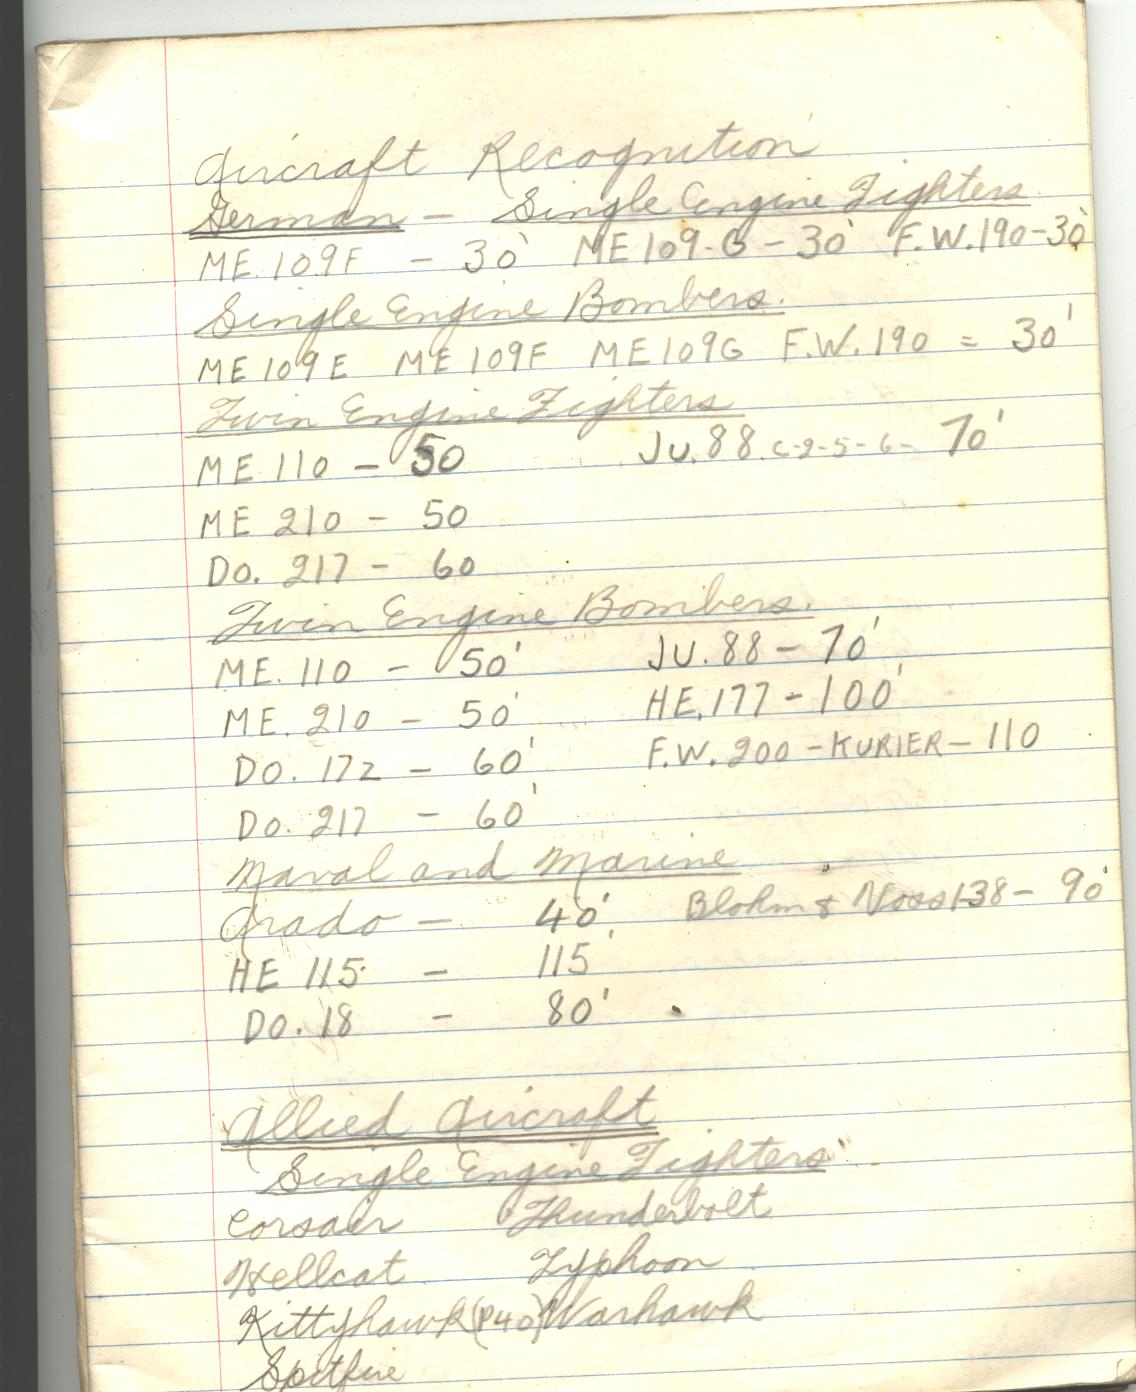 Aircraft Recognition
German - Single Engine Fighters
ME.109F - 30' ME109-G - 30' F.W.190-30'
Single Engine Bombers.
ME109E ME109F ME109G F.W.190 = 30'
Twin Engine Fighters
ME.110 - 50 JU.88.C-2-5-6- 70'
ME 210 - 50
Do. 217 - 60
Twin Engine Bombers.
ME.110 - 50' JU.88 - 70'
ME.210 - 50' HE.177 - 100'
DO.17Z - 60' F.W.200 - KURIER - 110
Do.217 - 60'
Naval and Marine
Arado - 40' Blohm & Voss 138 - 90'
HE 115 - 115'
DO.18 - 80'
Allied Aircraft
Single Engine Fighters
Corsair Thunderbolt
Hellcat Typhoon
Kittyhawk (P40) Warhawk
Spitfire